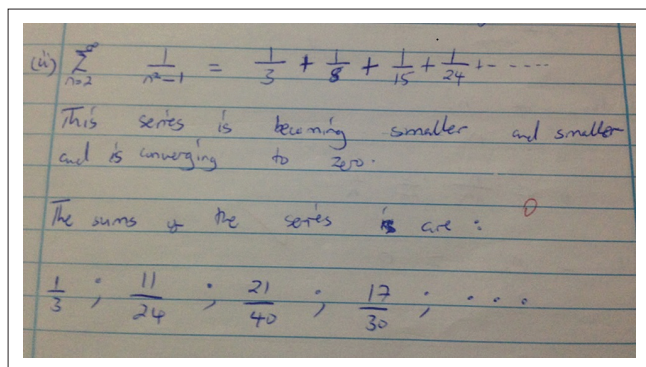 (ii) ∞∑n=2 1/n²-1 = 1/3 + 1/8 + 1/15 + 1/24 + -----
This series is becoming smaller and smaller
and is converging to zero.
0
The sums of the series is are :
1/3 ; 11/24 ; 21/40 ; 17/30 ; . . .